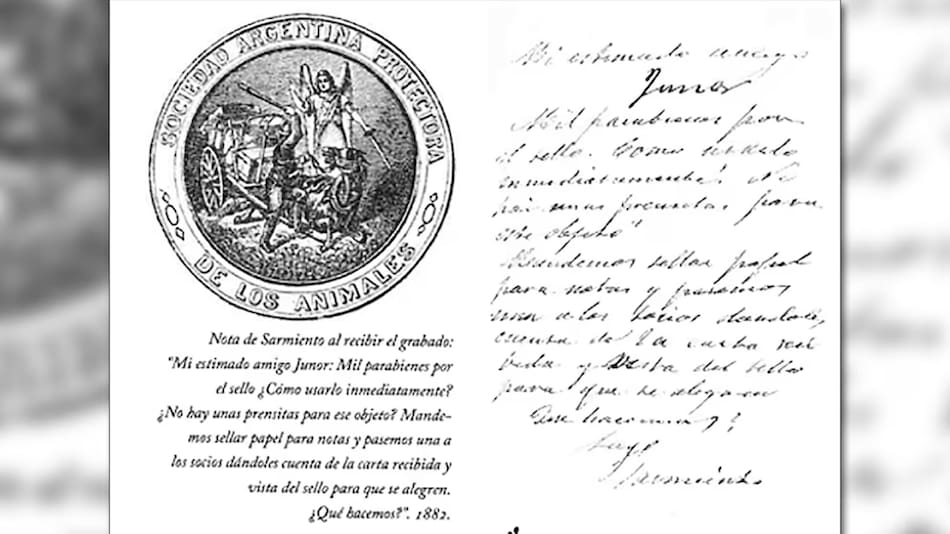 SOCIEDAD ARGENTINA PROTECTORA
DE LOS ANIMALES
Nota de Sarmiento al recibir el grabado:
"Mi estimado amigo Junor: Mil parabienes por
el sello ¿Cómo usarlo inmediatamente?
¿No hay unas prensitas para ese objeto? Mande-
mos sellar papel para notas y pasemos una a
los socios dándoles cuenta de la carta recibida y
vista del sello para que se alegren.
¿Qué hacemos?". 1882.
Mi estimado amigo
Junor
Mil parabienes por
el sello. Como usarlo
inmediatamente? No
hai unas prensitas para
ese objeto?
Mandemos sellar papel
para notas y pasemos
una a los socios dandoles
cuenta de la carta reci
bida y vista del sello
para que se alegren
Que hacemos?
Sarmiento